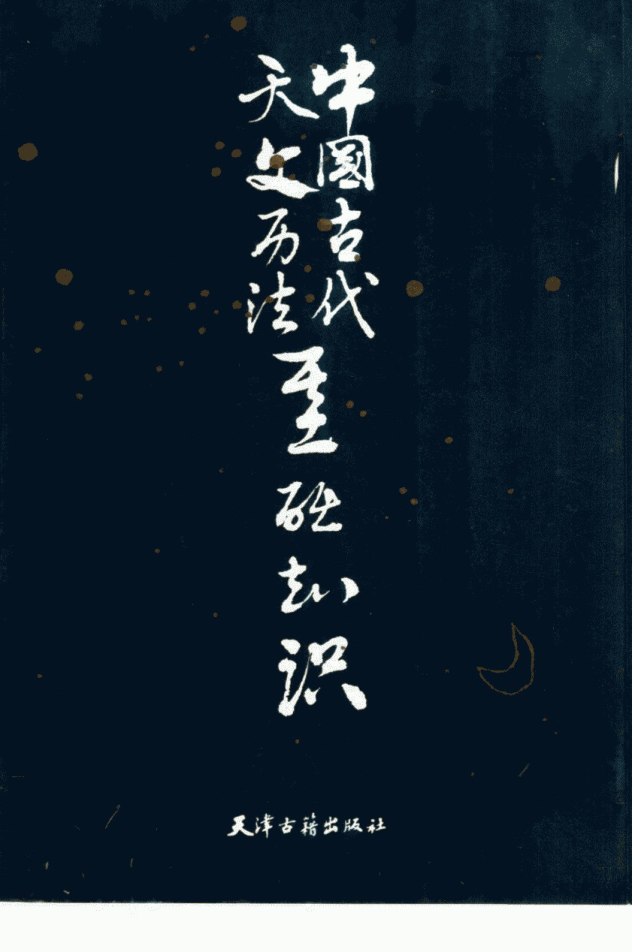 中國古代
天文历法
基础知识
天津古籍出版社